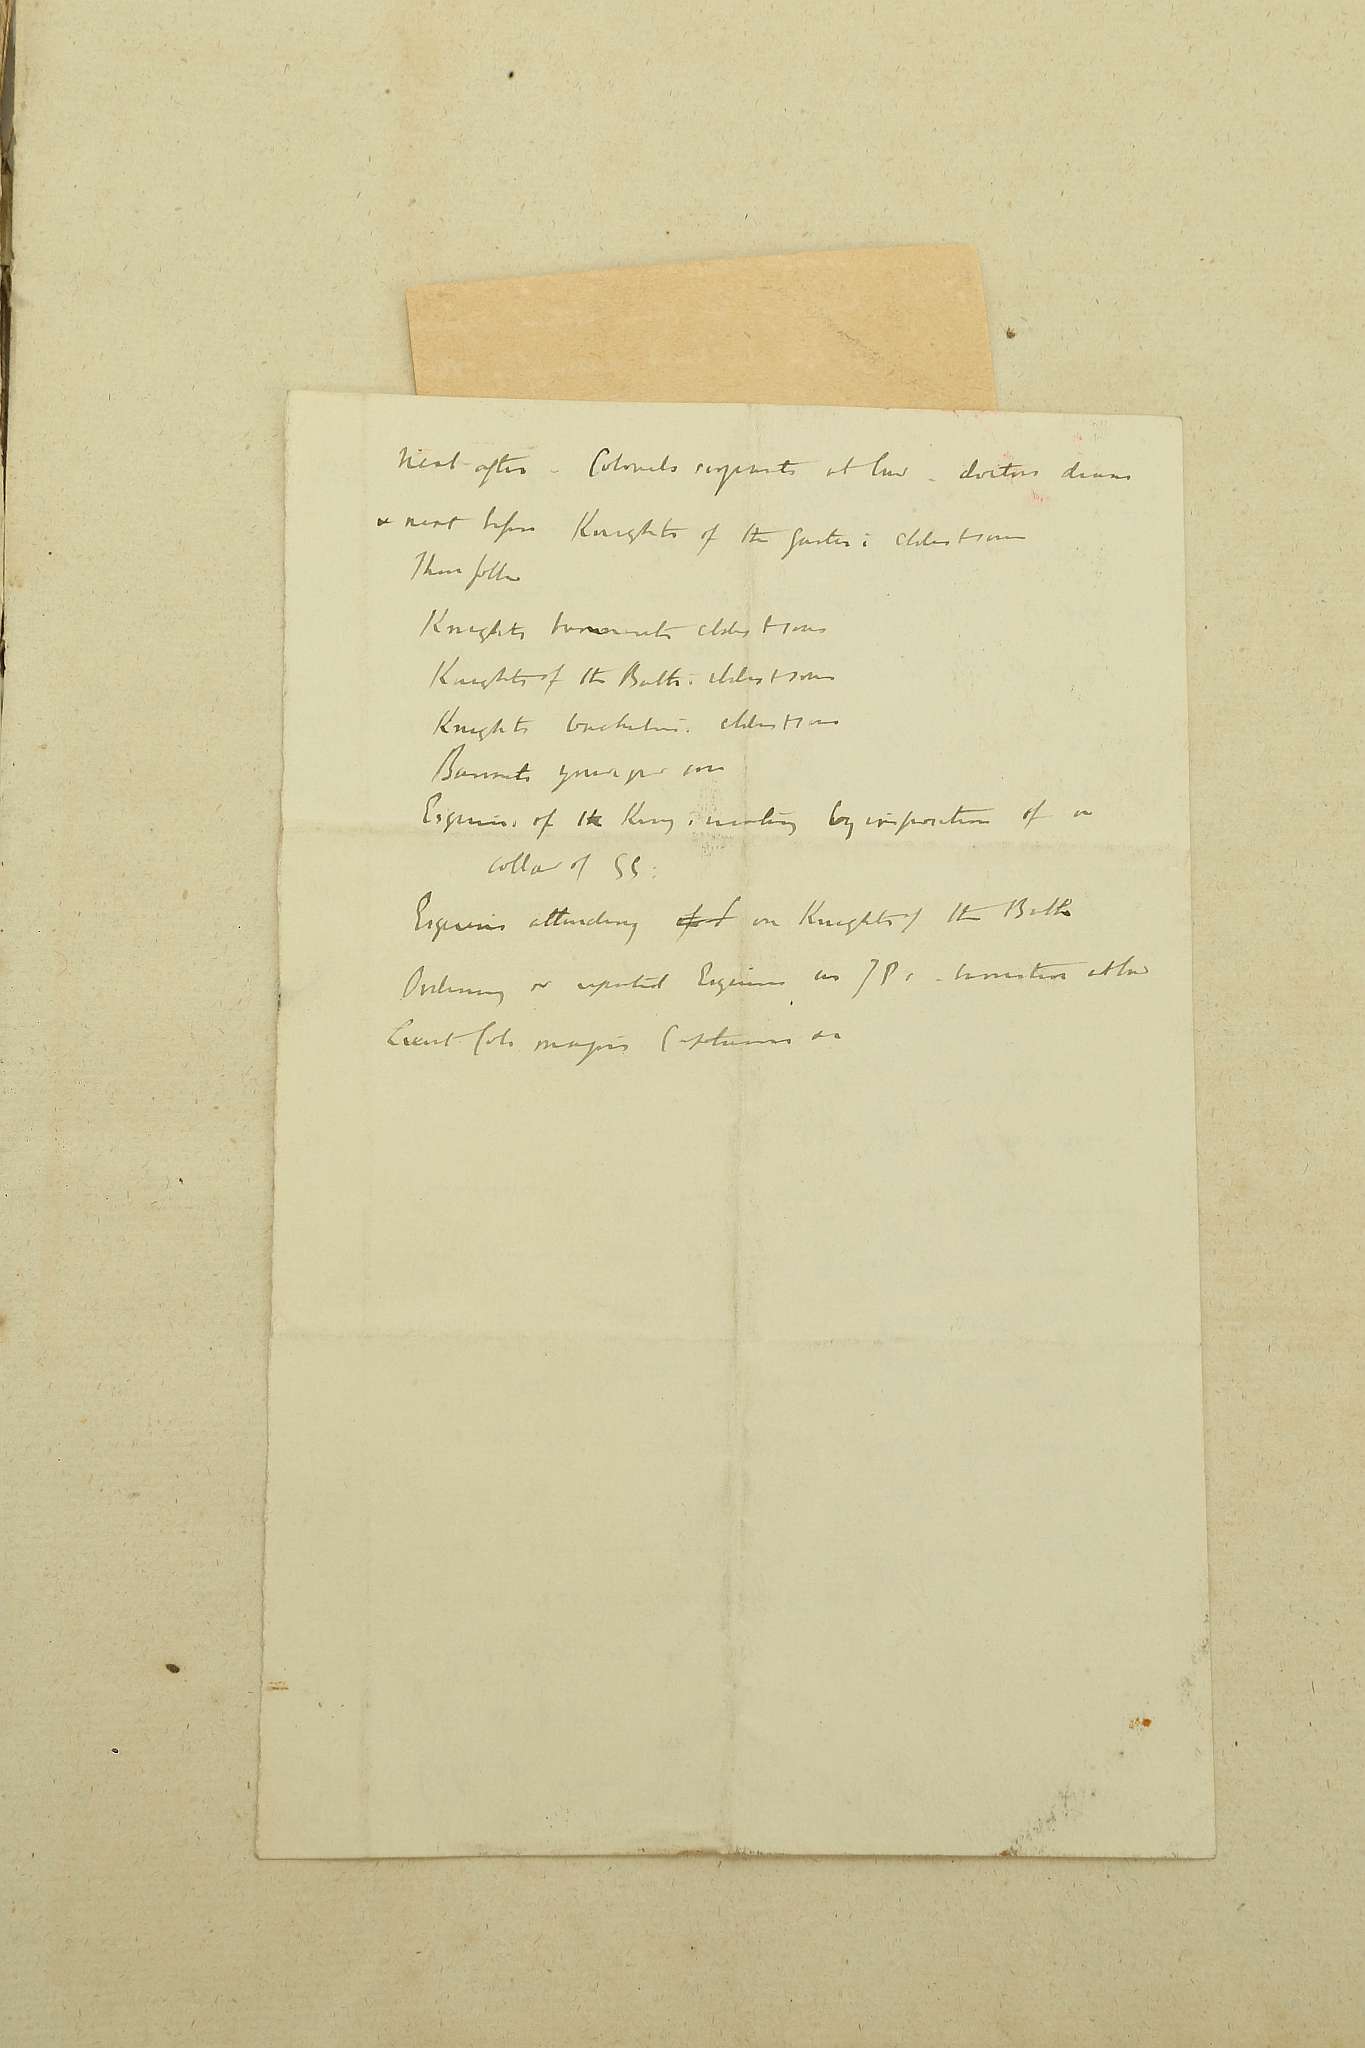 Next after - Colonels serjeants at law - doctors deans
& next before Knights of the Garter: eldest sons
Then follow
Knights bannerets eldest sons
Knights of the Bath: eldest sons
Knights bachelors: eldest sons
Baronets younger sons
Esquires of the King's creating by imposition of a
collar of SS:
Esquires attending on Knights of the Bath
Ordinary or reputed Esquires as JPs - barristers at law
Lieut Cols majors Captains &c